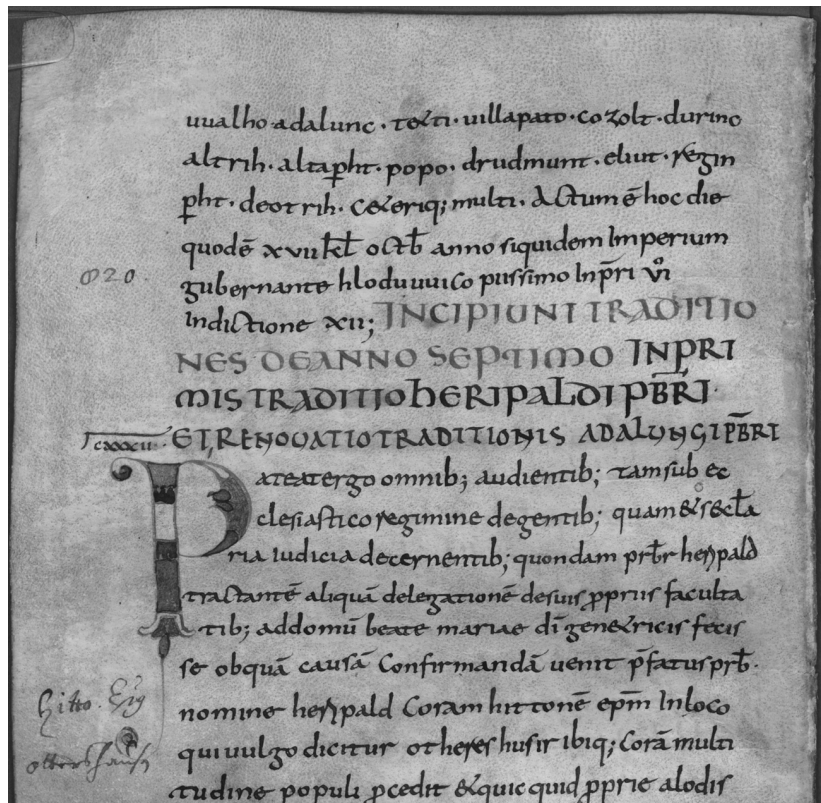 uualho adalunc · tozti · uillapato · cozolt · durinc
altrih · altapht · popo · drudmunt · eliut · regin
pht · deotrih · Ceteriq; multi · Actum ē hoc die
quodē xvii kł octb anno siquidem Imperium
820
gubernante hloduuuico piissimo Inpri vi
Indictione xii; INCIPIUNT TRADITIO
NES DE ANNO SEPTIMO INPRI
MIS TRADITIO HERIPALDI PBRI
CXXXII ET RENOVATIO TRADITIONIS ADALUNGI PBRI
Pateat ergo omnib; audientib; tam sub ec
clesiastico regimine degentib; quam & secla
ria Iudicia decernentib; quondam prbr heripald
tractantē aliquā delegationē de suis propriis faculta
tib; ad domū beate mariae dī genetricis fecis
se ob quā causā Confirmandā uenit pfatus prb ·
nomine heripald Coram hittonē epm In loco
Hitto
qui uulgo dicitur otheres husir ibiq; Corā multi
ottershausn
tudine populi pcedit & quicquid pprie alodis